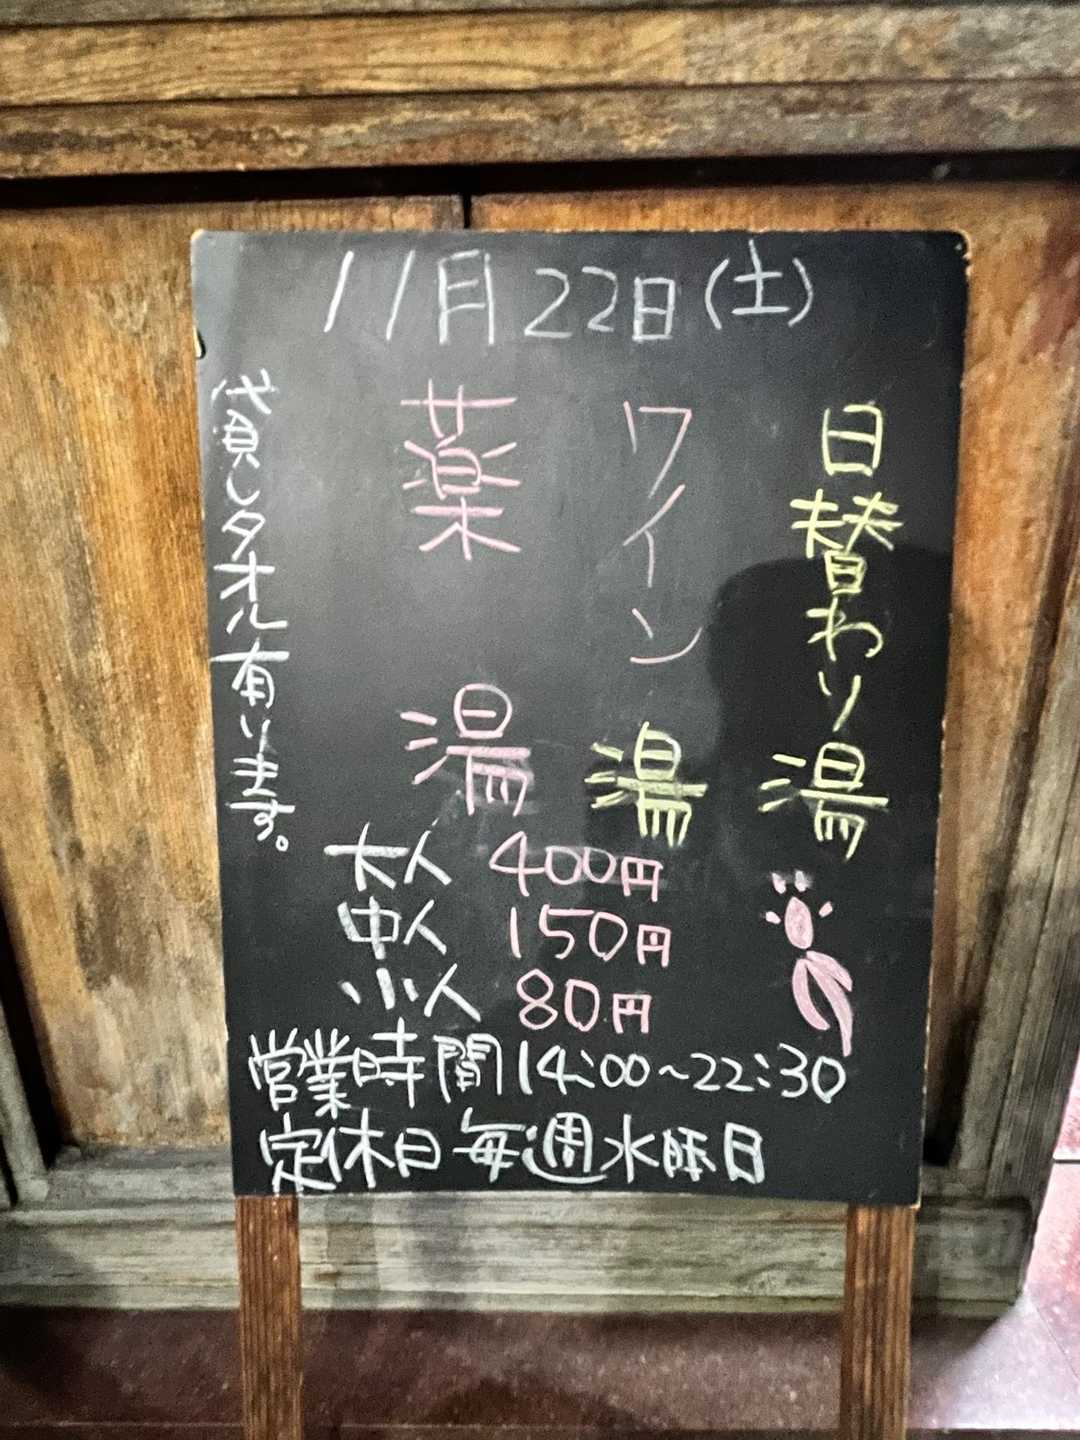 11月22日(土)
日替わり湯
ワイン湯
薬湯
貸しタオル有ります。
大人 400円
中人 150円
小人 80円
営業時間 14:00~22:30
定休日 毎週水曜日